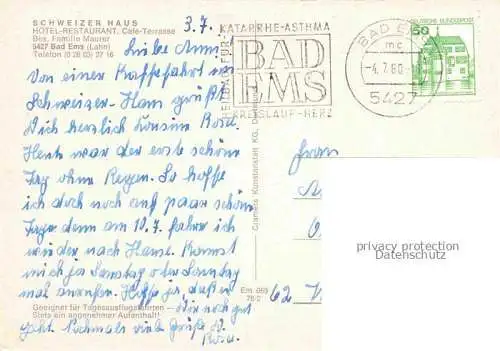 SCHWEIZER HAUS
HOTEL-RESTAURANT, Café-Terrasse
Bes. Familie Maurer
5427 Bad Ems (Lahn)
Telefon (0 26 03) 27 16
3.7.
Liebe Anni
Von einer Kaffefahrt im
Schweizer-Haus grüßt
Dich herzlich Cousine Rosel.
Heute war der erste schöne
Tag ohne Regen. So hoffe
ich doch noch auf paar schöne
Tage denn am 10.7. fahre ich
wieder nach Hause. Kannst
mich ja Samstag oder Sonntag
mal anrufen. Hoffe ja daß es
Dir noch gut
geht. Nochmals viele Grüße D.
Rosel.
Geeignet für Tagesausflugsfahrten –
Stets ein angenehmer Aufenthalt!
HEILBAD FÜR
KATARRHE-ASTHMA
BAD
EMS
KREISLAUF-HERZ
BAD EMS
mc
-4.7.80-
5427
DEUTSCHE BUNDESPOST
50
Cramers Kunstanstalt KG, Dortmund
Em 669
78/2
Frau
62
privacy protection
Datenschutz